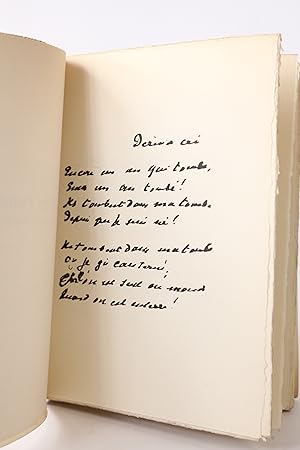 Dernier cri
Encore un an qui tombe,
Encor un an tombé !
Ils tombent dans ma tombe
Depuis que je suis né !
Ils tombent dans ma tombe
Où je gis
on est seul au monde
Quand on est enterré !